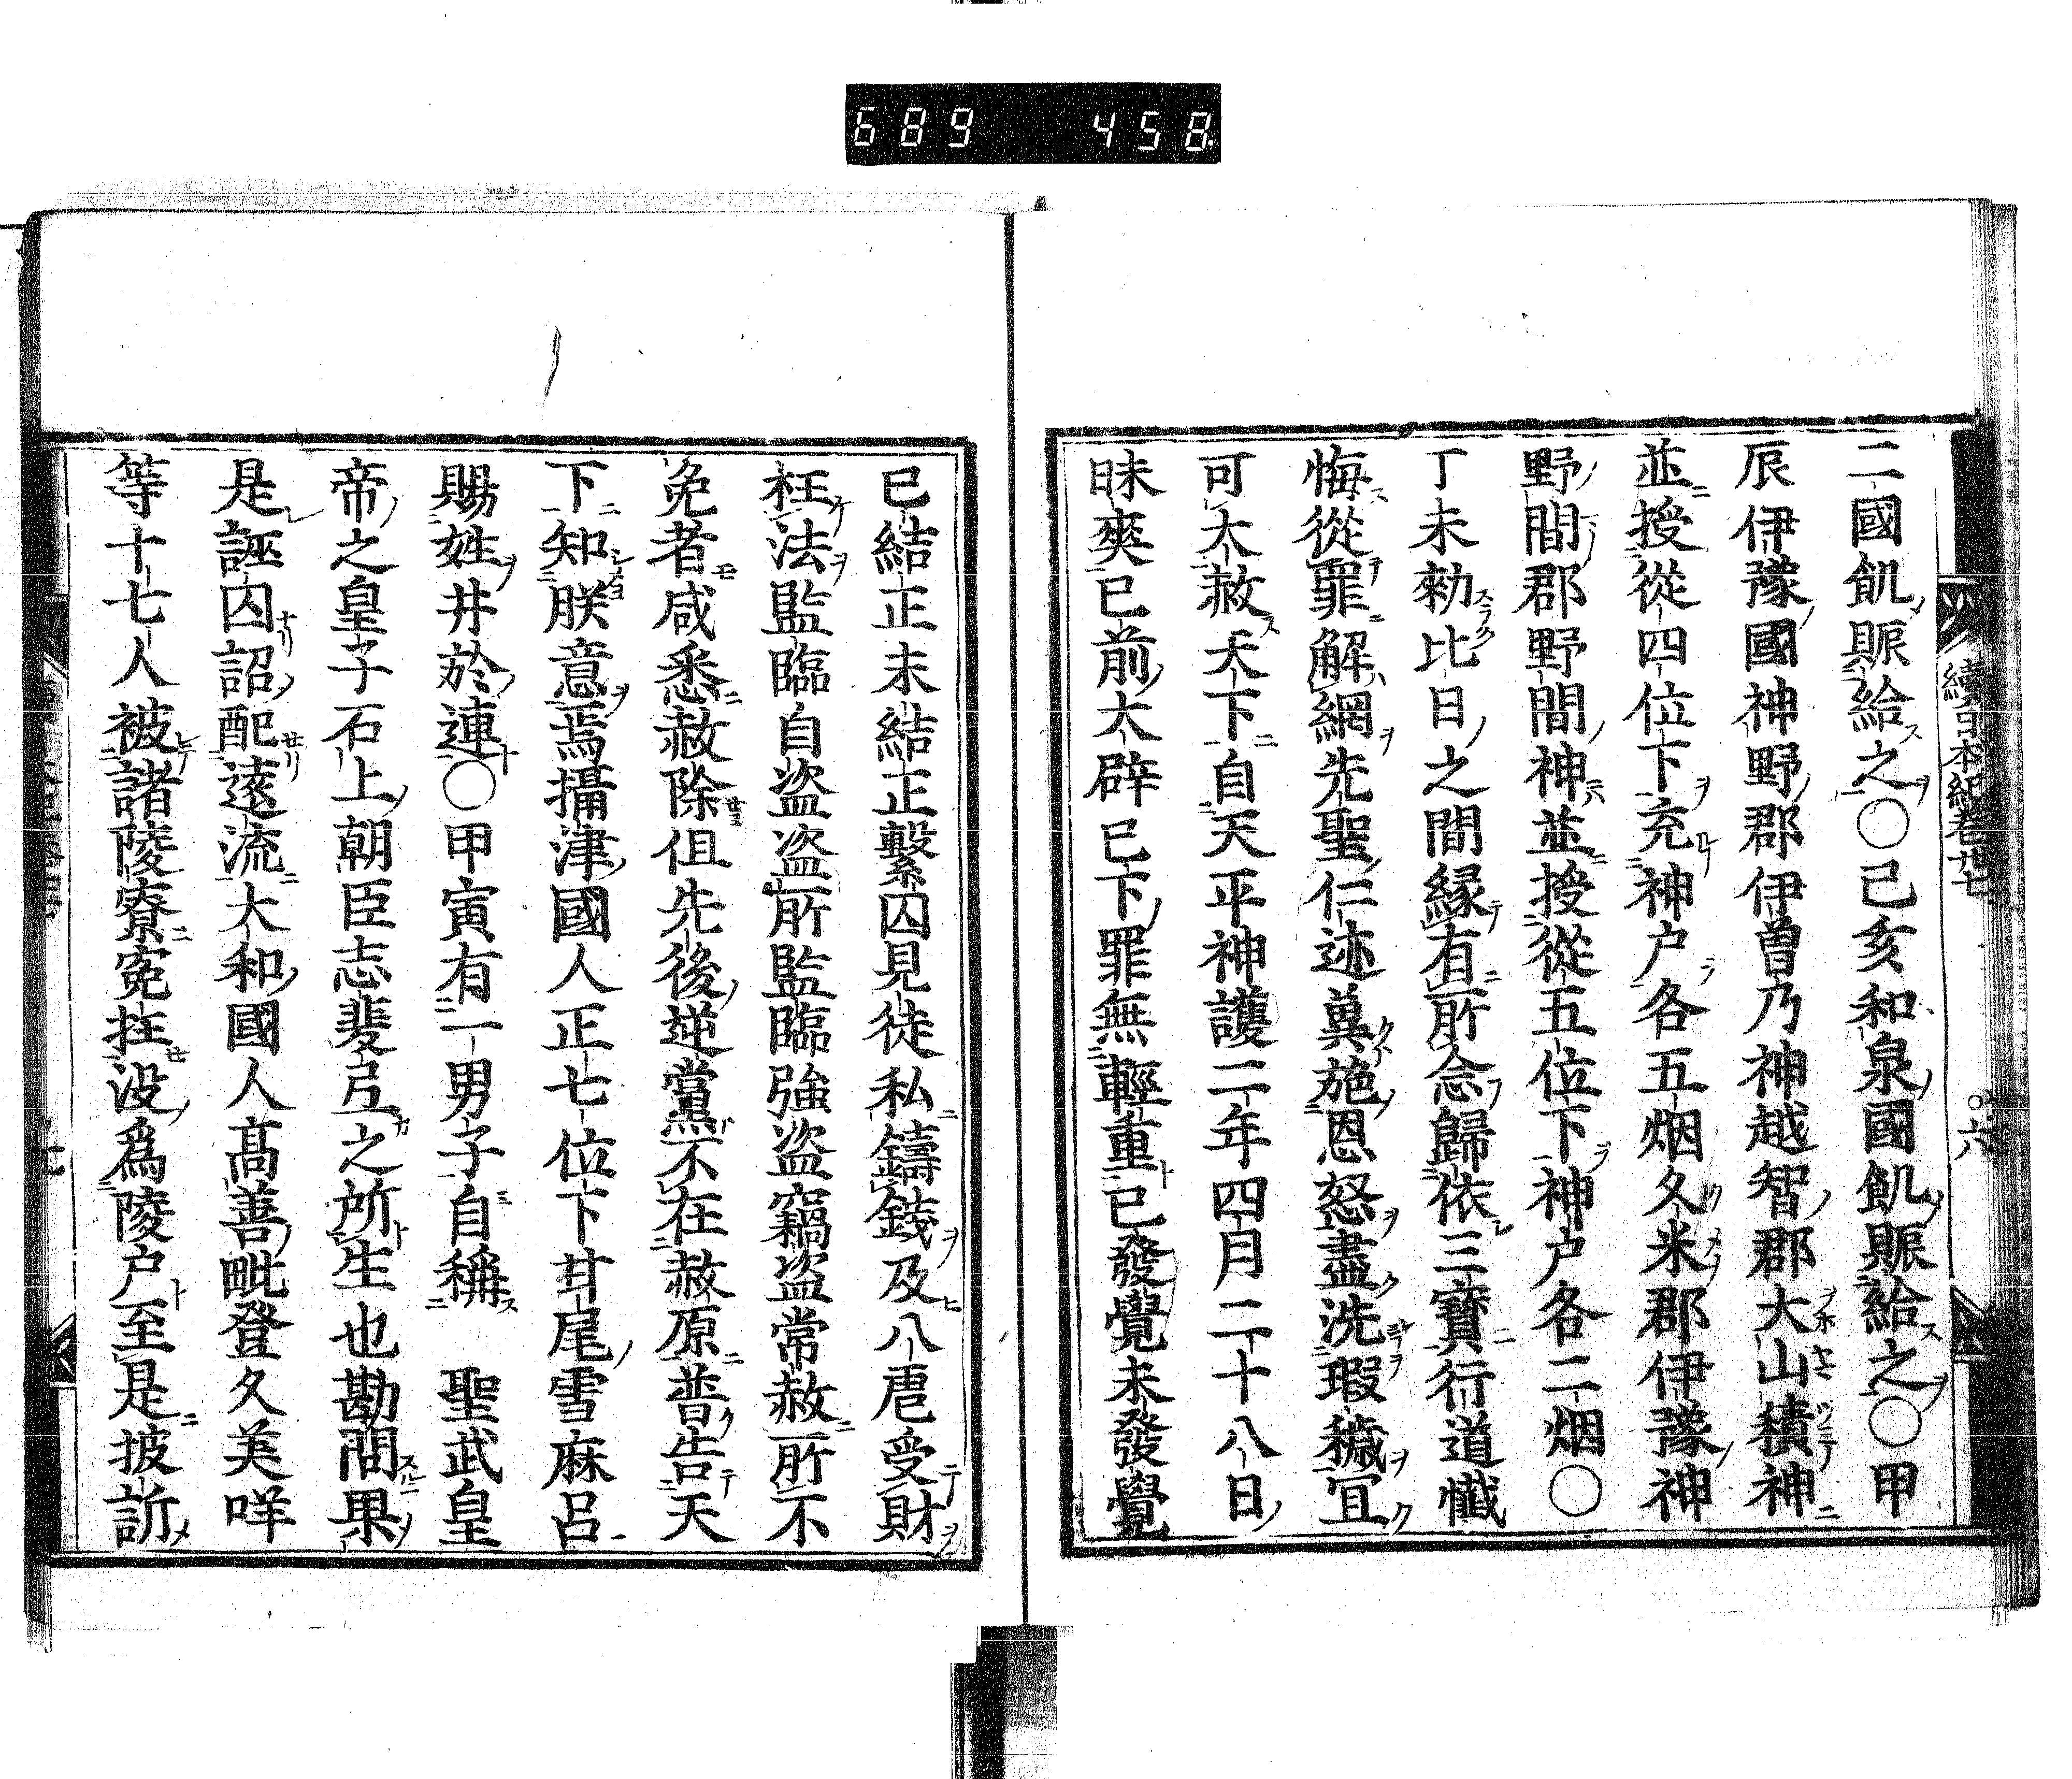 689 458
續日本紀卷廿七 六
二國飢賑給之○己亥和泉國飢賑給之○甲
辰伊豫國神野郡伊曽乃神越智郡大山積神
並授從四位下充神户各五烟久米郡伊豫神
野間郡野間神並授從五位下神户各二烟○
丁未勑比日之間縁有所念歸依三寶行道懺
悔從罪解網先聖仁迹兾施恩恕盡洗瑕穢冝
可大赦天下自天平神護二年四月二十八日
昧爽已前大辟已下罪無輕重已發覺未發覺
已結正未結正繫囚見徒私鑄錢及八虐受財
枉法監臨自盗盗所監臨強盗竊盗常赦所不
免者咸悉赦除但先後逆黨不在赦原普告天
下知朕意焉攝津國人正七位下甘尾雪麻呂
賜姓井於連○甲寅有一男子自稱 聖武皇
帝之皇子石上朝臣志斐弖之所生也勘問果
是誣囚詔配遠流大和國人高善毗登久美咩
等十七人被諸陵寮寃拄没爲陵户至是披訴